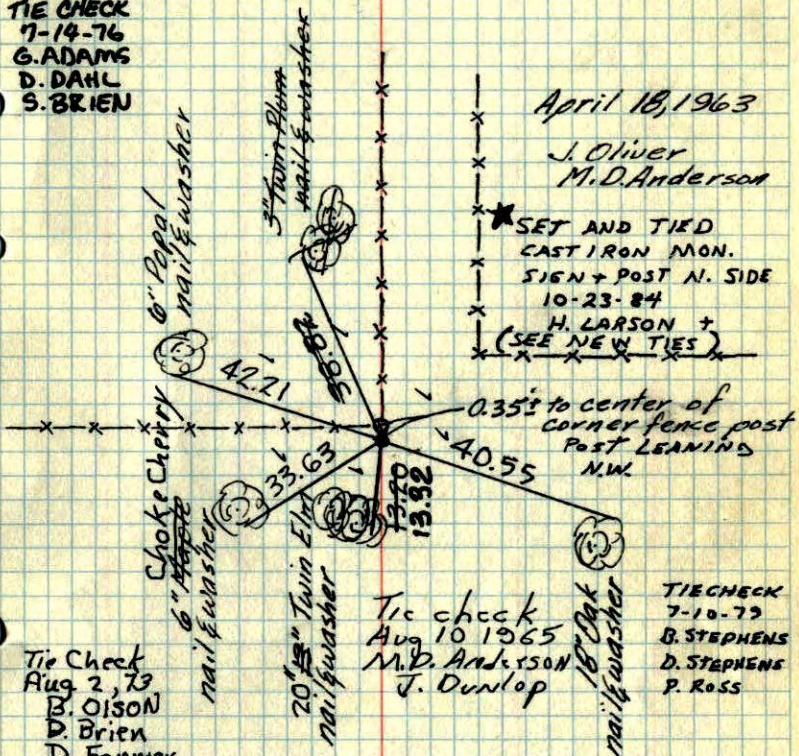 TIE CHECK
7-14-76
G. ADAMS
D. DAHL
S. BRIEN
April 18, 1963
J. Oliver
M.D. Anderson
★ SET AND TIED
CAST IRON MON.
SIGN + POST N. SIDE
10-23-84
H. LARSON +
(SEE NEW TIES)
3" Twin Plum
nail & washer
6" Popal
nail & washer
42.21
0.35'± to center of
corner fence post
POST LEANING
N.W.
33.63
40.55
13.92
Choke Cherry
6" Maple
nail & washer
20" Twin Elm
nail & washer
18" Oak
nail & washer
Tie check
Aug 10 1965
M.D. Anderson
J. Dunlop
TIE CHECK
7-10-79
B. STEPHENS
D. STEPHENS
P. ROSS
Tie Check
Aug 2, 73
B. OlSON
D. Brien